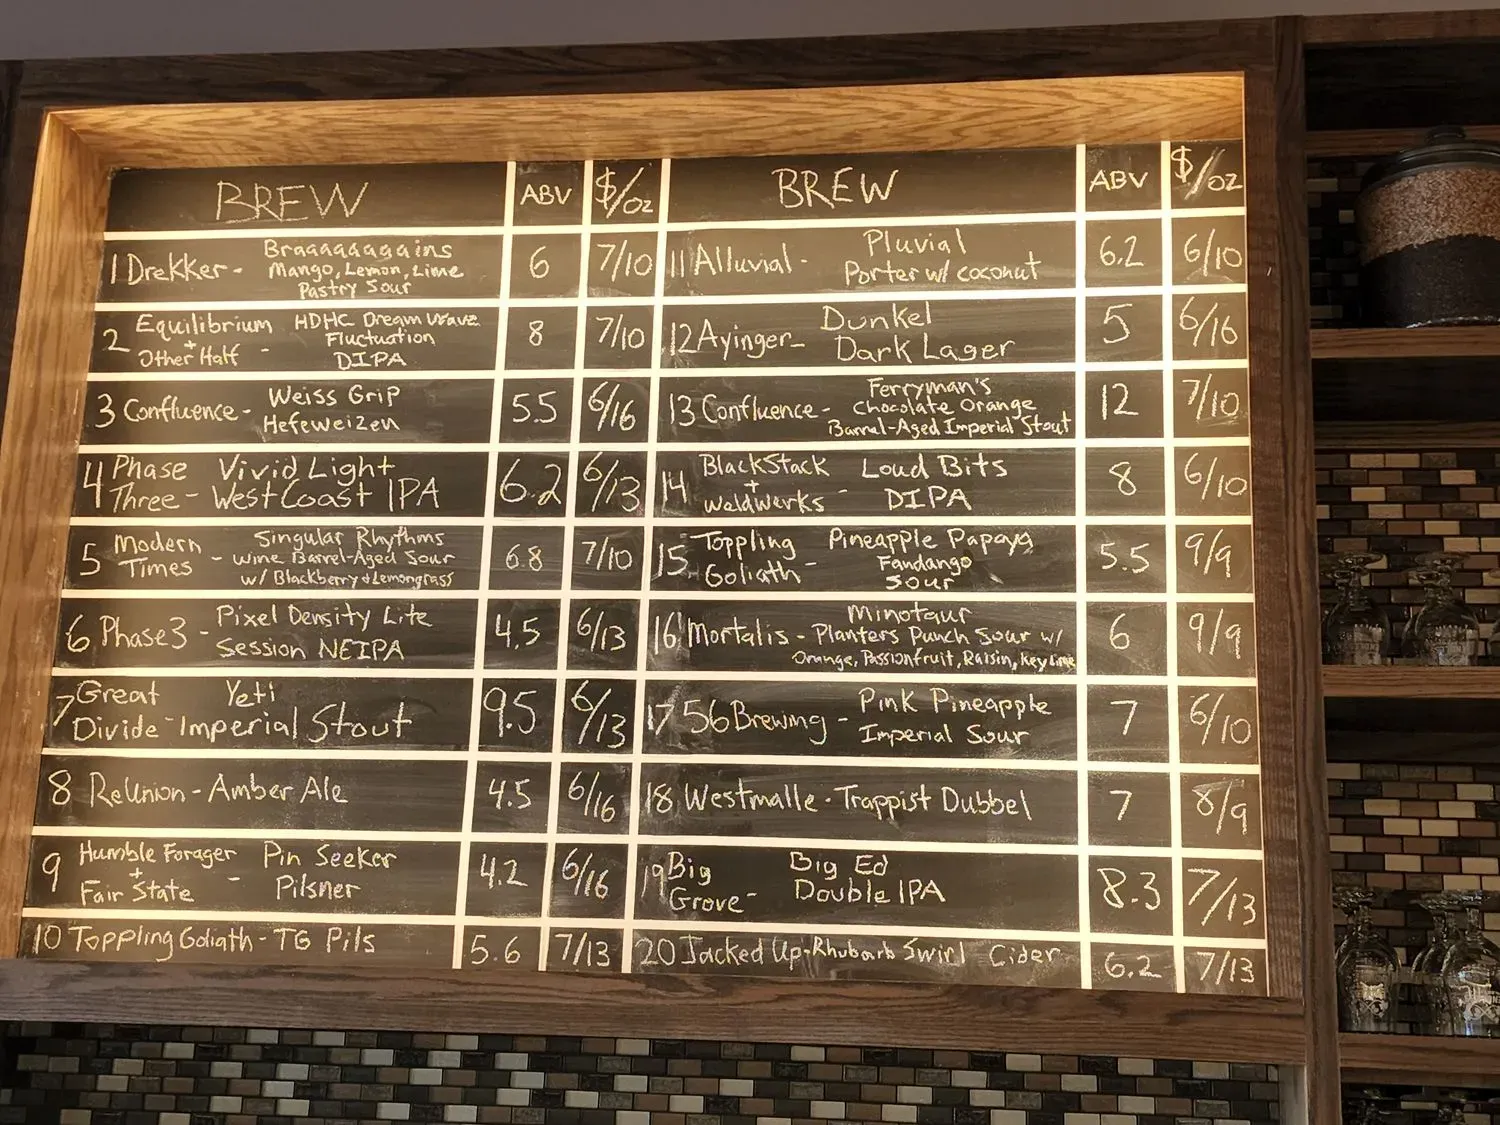 BREW ABV $/oz
1 Drekker - Braaaaaaagains 6 7/10
Mango, Lemon, Lime
Pastry Sour
2 Equilibrium + Other Half - HDHC Dream Wave 8 7/10
Fluctuation
DIPA
3 Confluence - Weiss Grip 5.5 6/16
Hefeweizen
4 Phase Three - Vivid Light 6.2 6/13
West Coast IPA
5 Modern Times - Singular Rhythms 6.8 7/10
Wine Barrel-Aged Sour
w/ Blackberry + Lemongrass
6 Phase 3 - Pixel Density Lite 4.5 6/13
Session NEIPA
7 Great Divide - Yeti 9.5 6/13
Imperial Stout
8 ReUnion - Amber Ale 4.5 6/16
9 Humble Forager + Fair State - Pin Seeker 4.2 6/16
Pilsner
10 Toppling Goliath - TG Pils 5.6 7/13
BREW ABV $/oz
11 Alluvial - Pluvial 6.2 6/10
Porter w/ coconut
12 Ayinger - Dunkel 5 6/16
Dark Lager
13 Confluence - Ferryman's 12 7/10
Chocolate Orange
Barrel-Aged Imperial Stout
14 BlackStack + WeldWerks - Loud Bits 8 6/10
DIPA
15 Toppling Goliath - Pineapple Papaya 5.5 9/9
Fandango
Sour
16 Mortalis - Minotaur 6 9/9
Planters Punch Sour w/
Orange, Passionfruit, Raisin, Key Lime
17 56 Brewing - Pink Pineapple 7 6/10
Imperial Sour
18 Westmalle - Trappist Dubbel 7 8/9
19 Big Grove - Big Ed 8.3 7/13
Double IPA
20 Jacked Up - Rhubarb Swirl Cider 6.2 7/13